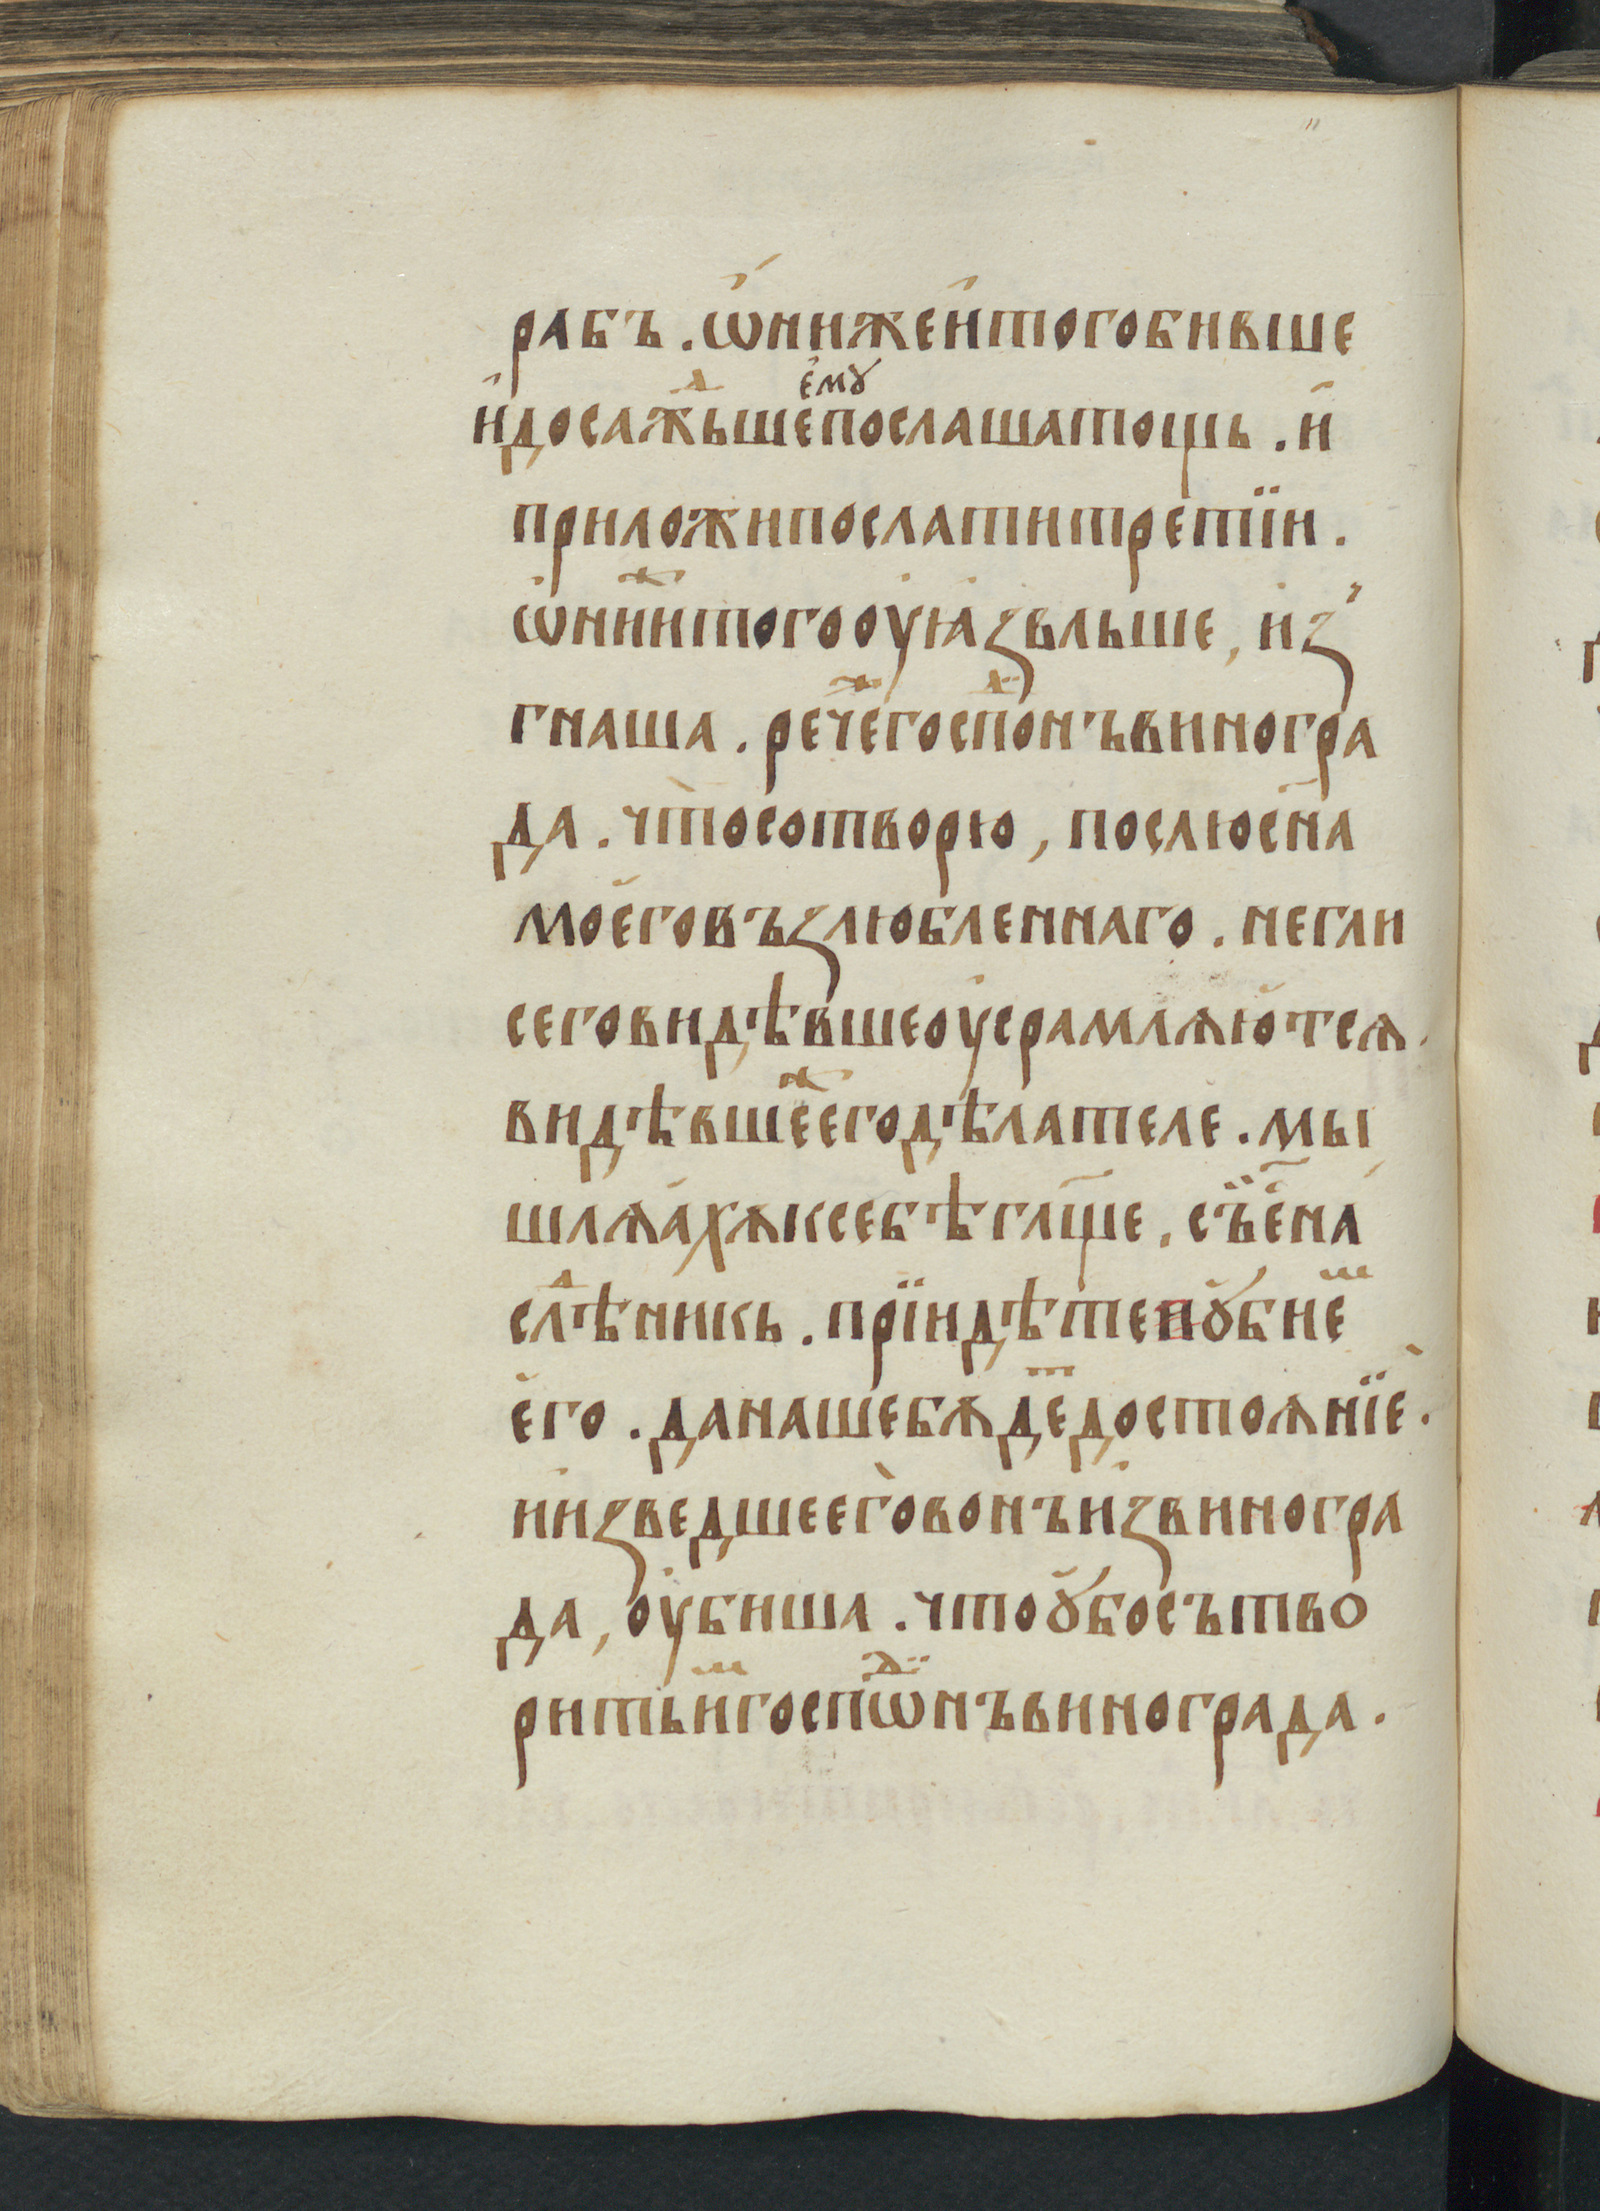 рабъ . ѡ҆нижеи҆тогобившe
и҆досаⷤ҇дьшеє҆мꙋпослашатощь . и҆
приложипослатитретїи .
ѡ҆ниⷤи҆тогооу҆ꙗ҆звльше , и҆з̾
гнаша . речеⷤ҇госпоⷣнъвиногра
да . что̀сотворю , послюсн҃а
моє҆говъзлюбленнаго . негли
сеговидѣвшеоу҆срамлѧю҆тсѧ .
видѣвшеⷤєгодѣлателе . мы
шлѧа҆хѫксебѣгл҃ще . съ̈є҆́на
слⷣѣникь . прїидѣтеꙋ҆бїеⷨ
є҆го . данашебѫдеⷮдостоѧнїѐ .
ии҆зведшеего̀вонъи҆звиногра
да , оу҆биша . чтоꙋ҆босътво
ритьиⷨгоспѡⷣнъвинограда .